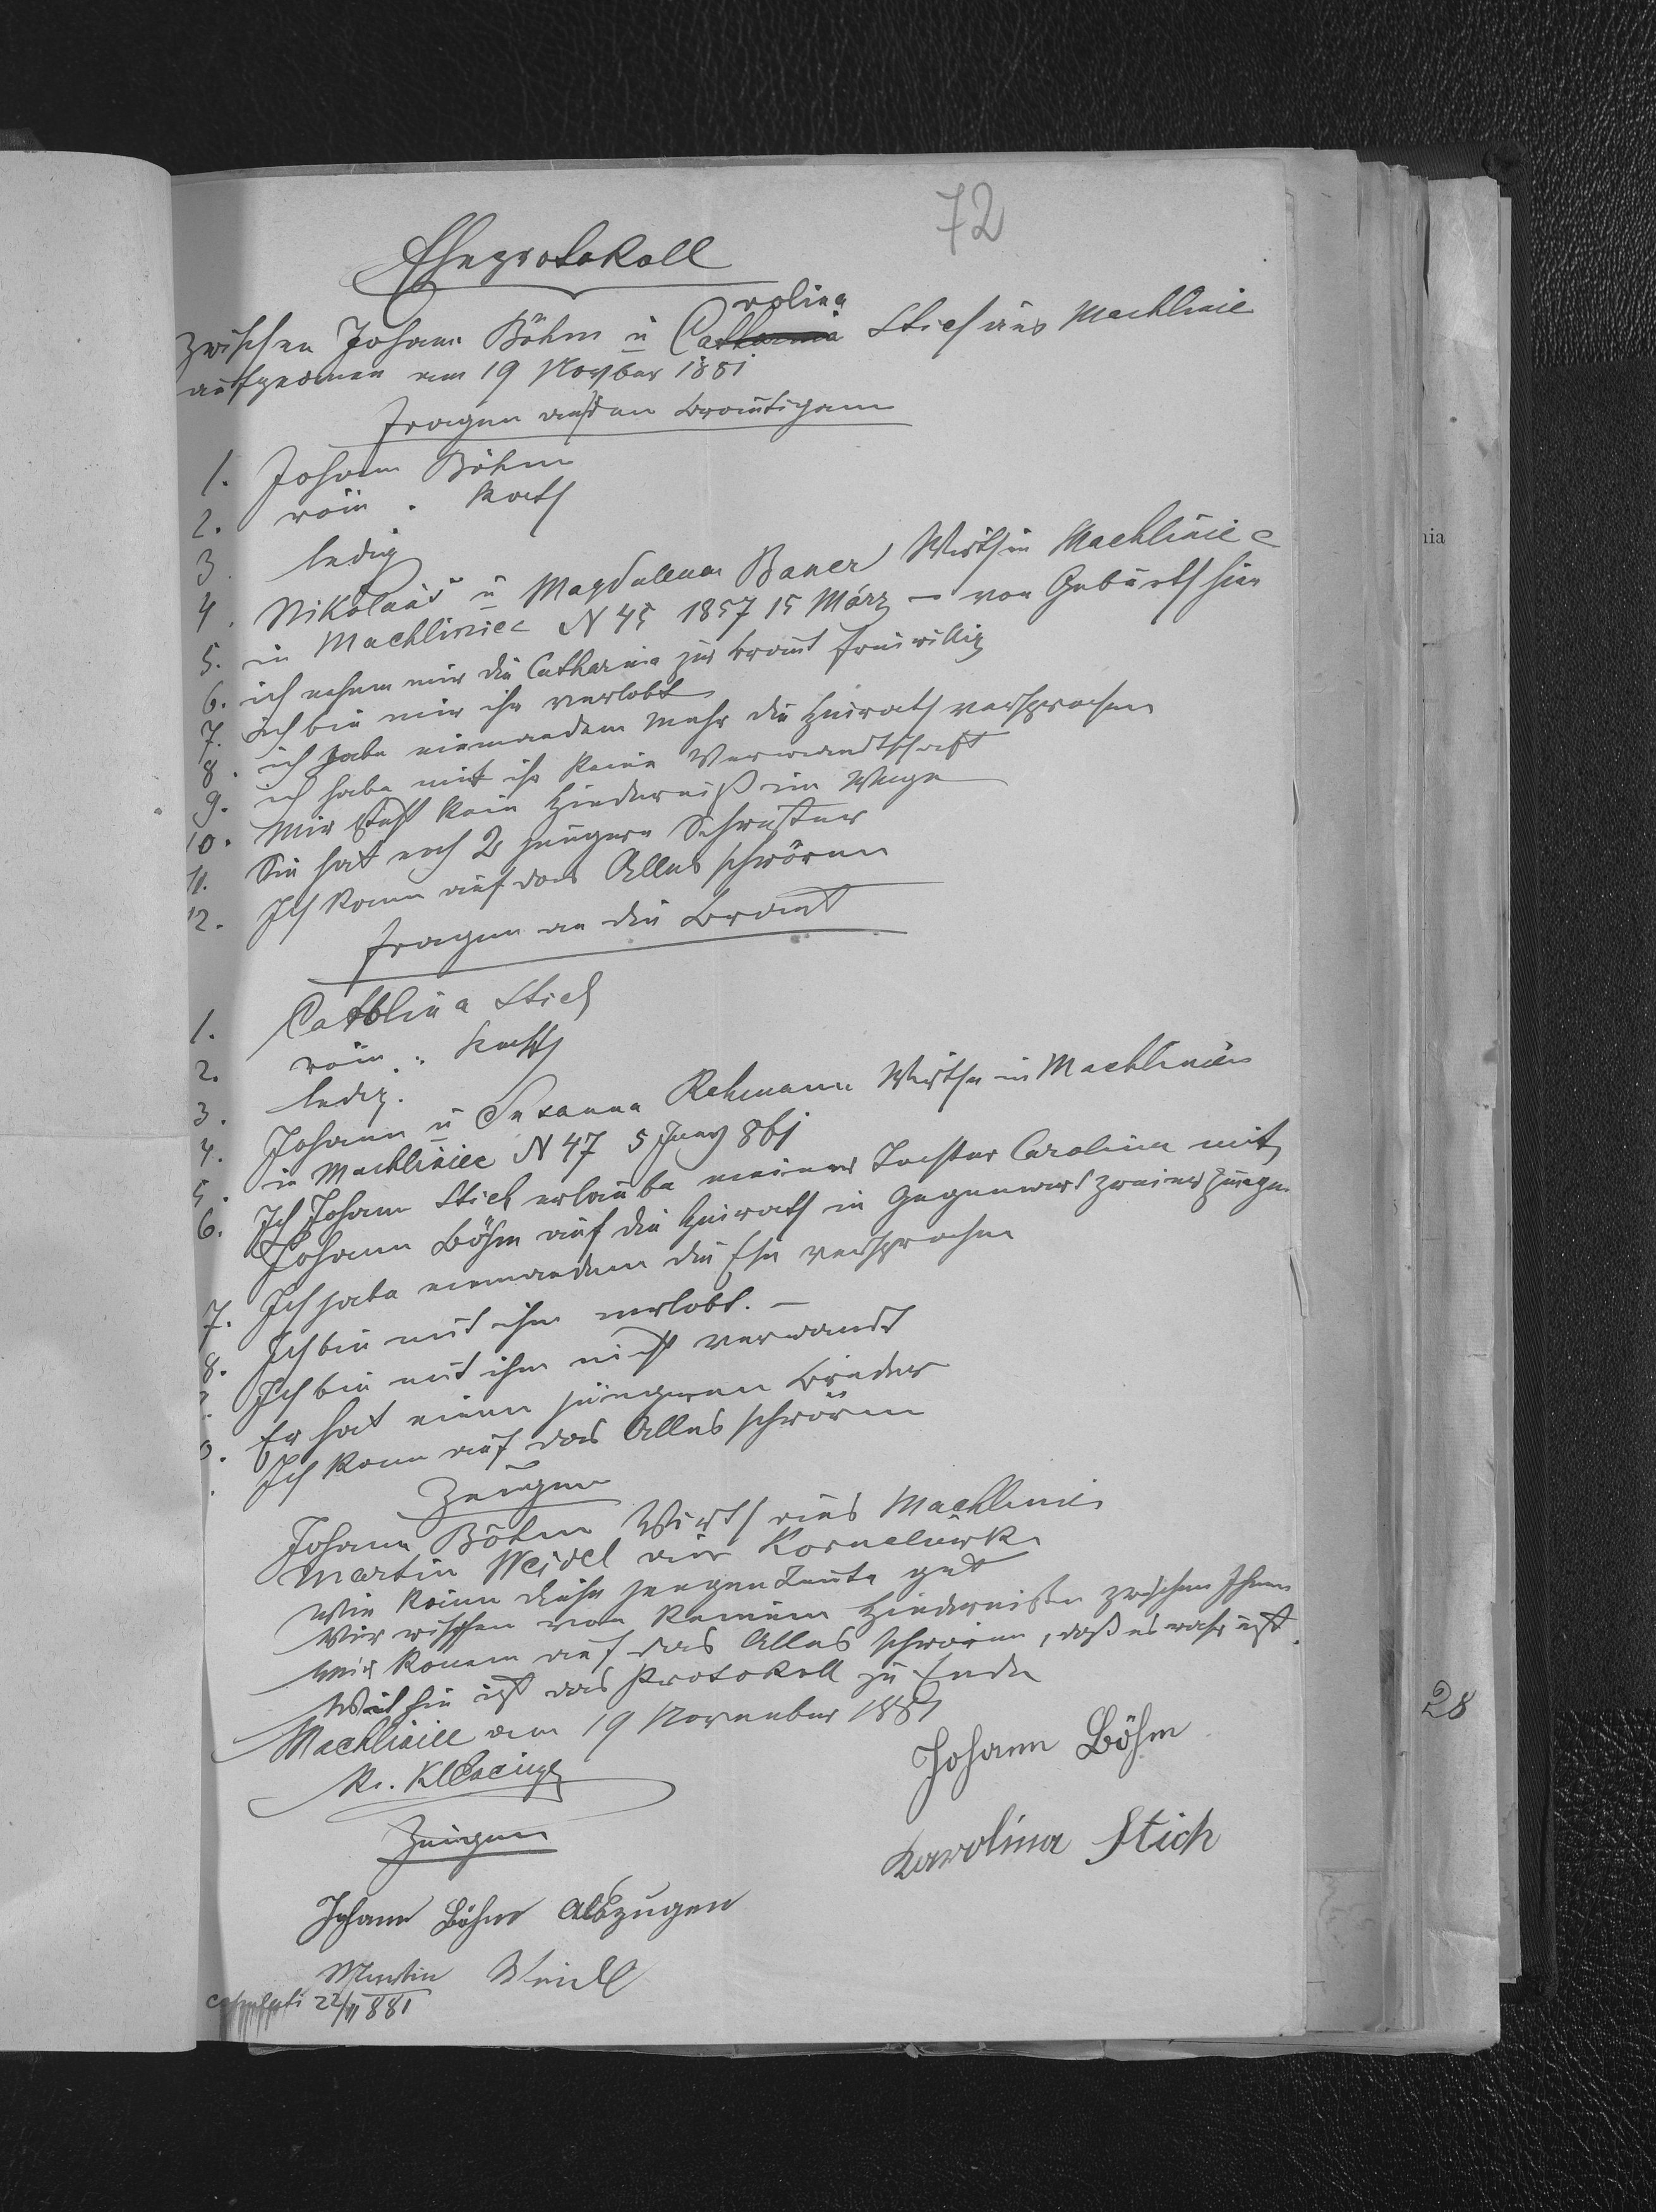 72
Eheprotokoll
rolina
zwischen Johann Böhm u Catharina Stich aus Machlinie
aufgenomen am 19 Novber 1881
Fragen an den Bräutigam
1. Johann Böhm
2. röm. Kath
3. ledig
4. Nikolaus u Magdalena Bauer Wirth in Machliniec
5. in Machliniec N 45 1857 15 März – von Geburth hier
6. ich nehme mir die Catharina zur Braut freiwillig
7. Ich bin mir ihr verlobt
8. ich habe niemandem mehr die Heirath versprochen
9. ich habe mit ihr keine Verwandtschaft
10. Mir steht kein Hinderniß im Wege
11. Sie hat noch 2 jüngere Schwester
12. Ich kann auf das Alles schwören
Fragen an die Braut
1. Stich
2. röm. Kath
3. ledig.
4. Johann u Susanna Rehmann Wirthe in Machliniec
5. in Machliniec N 47 5 861
6. Ich Johann Stich erlaube meiner Tochter Carolina mit
Johann Böhm auf die Heirath in Gegenwart zweier Zeugen
7. Ich habe niemandem die Ehe versprochen
8. Ich bin mit ihm verlobt. –
Ich bin mit ihm nicht verwandt
Er hat einen jüngeren Bruder
Ich kann auf das Alles schwören
Zeugen
Johann Böhm Wirth aus Machlinie
Martin Weidel aus
Wir diese jungen Leute gut
Wir wissen von keinem Hinderniße zwischen Ihnen
Wir konen auf das Alles schwören, daß es wahr ist.
Mit hin ist das Protokoll zu Ende
Machliniec am 19 November 1881
Johann Böhm
Zeugen
Karolina Stich
Johann Böhm als zeugen
Martin Weidl
copulati 22/11 881
nia
28